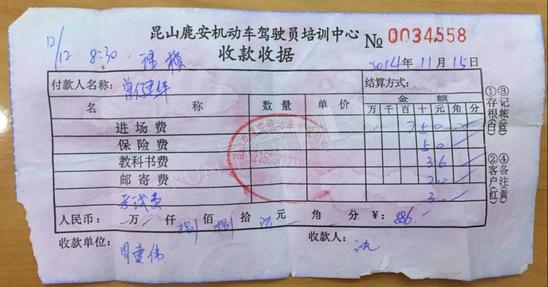 昆山鹿安机动车驾驶员培训中心
12/12 8:30
№ 0034558
收款收据
2014年11月15日
付款人名称: 结算方式:
名 称 数量 单价 金额
万 千 百 十 元 角 分
进场费 750
保险费 50
教科书费 36
邮寄费 20
考试费 30
人民币: 万 仟 捌佰 捌拾 陆元 角 分 ¥: 886
收款单位: 收款人:
周建伟
①存根(白) ③记帐(蓝)
②客户(红) ④备注(黄)